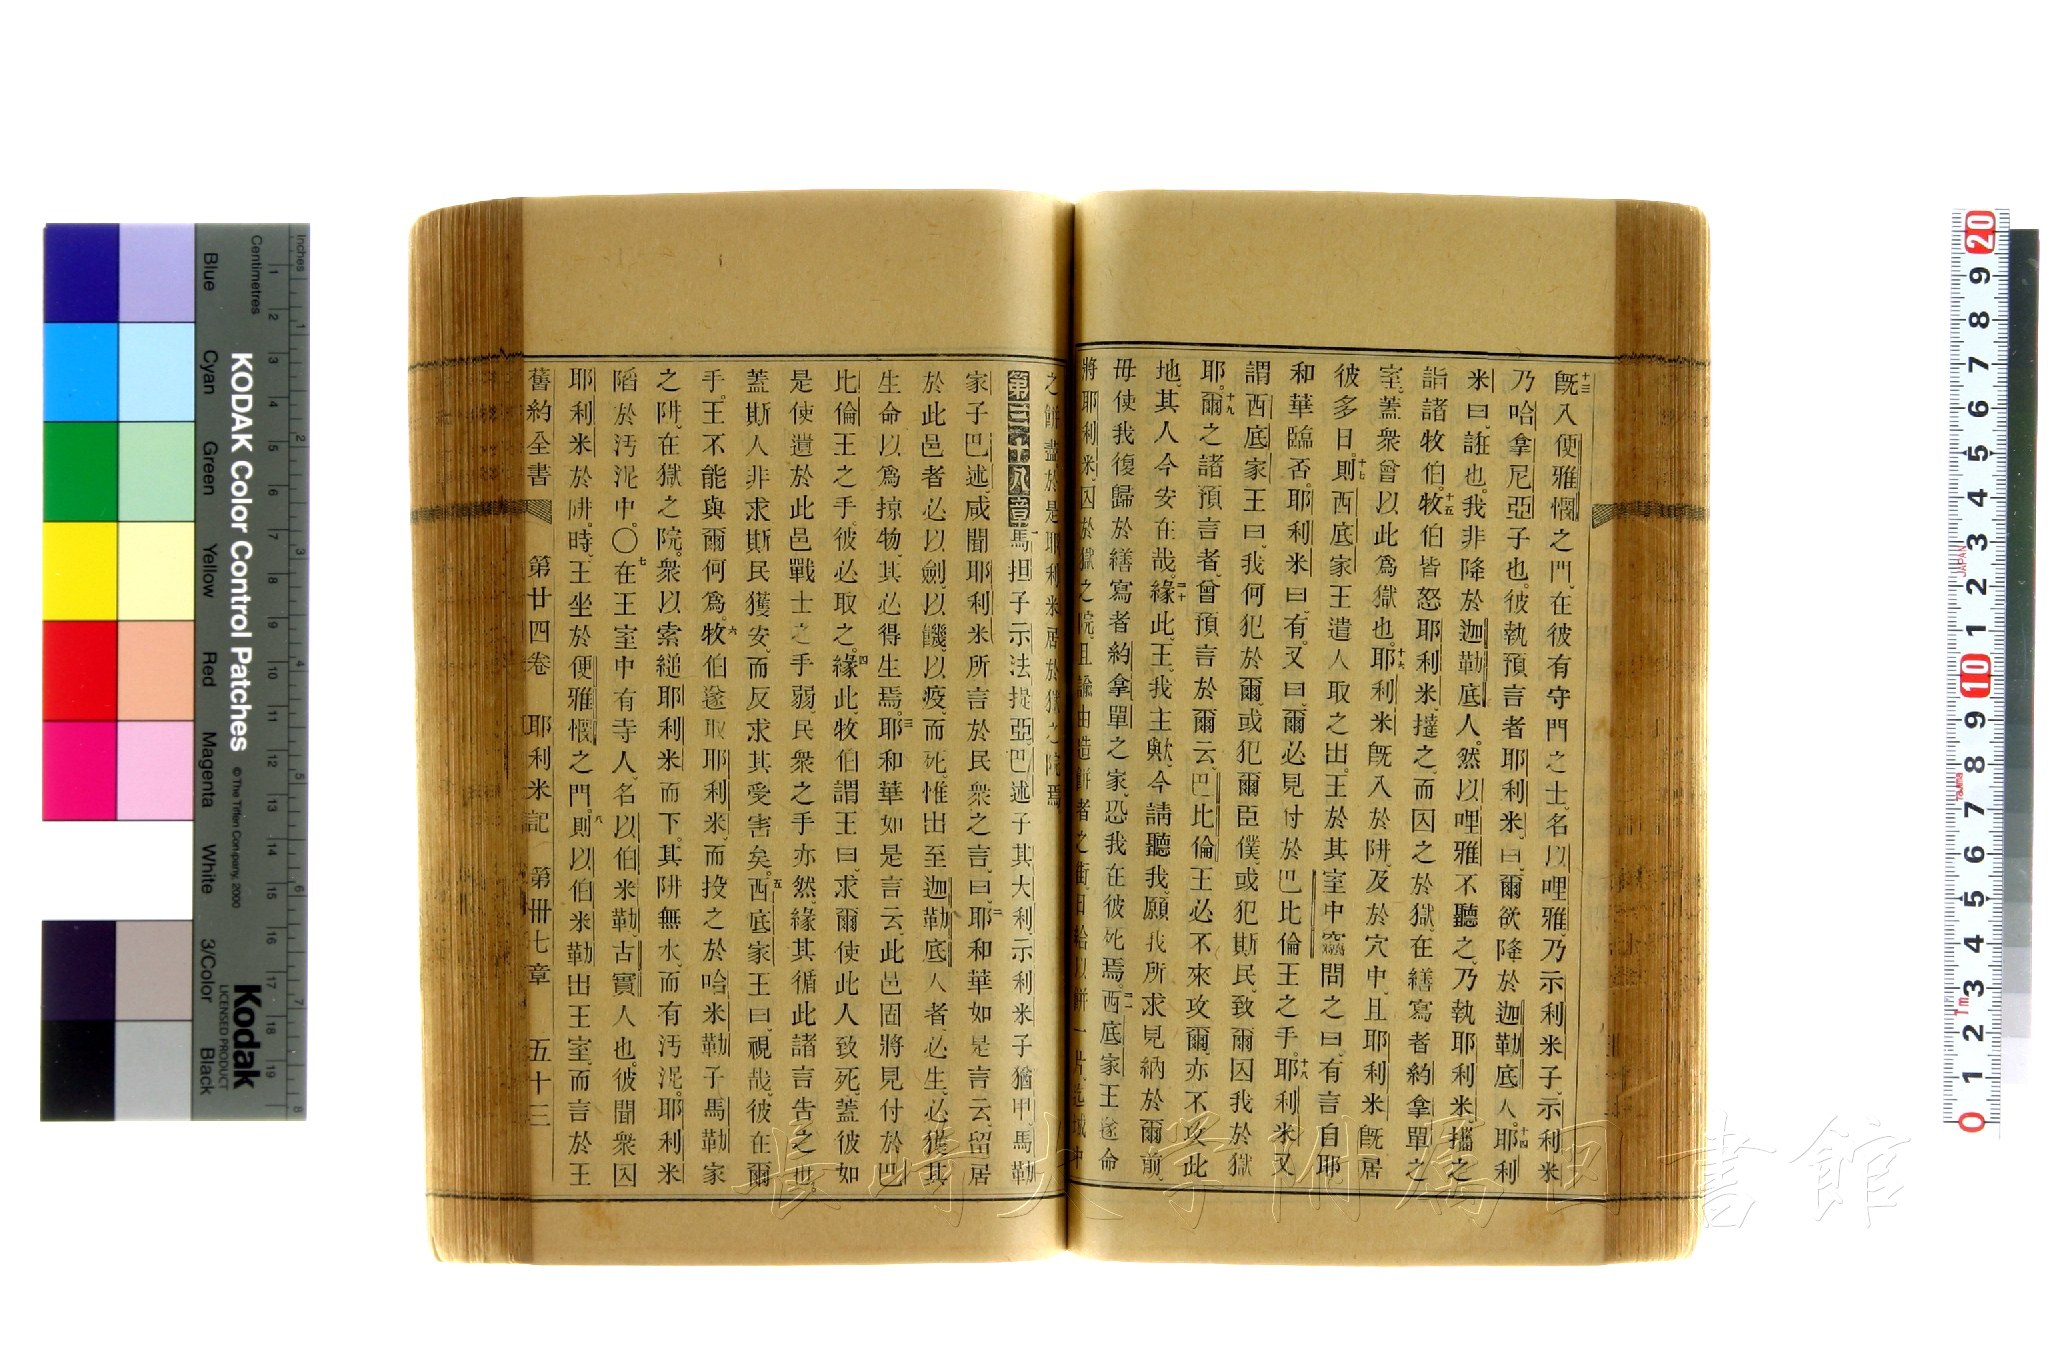 既入便雅憫之門、在彼有守門之士、名以哩雅、乃示利米子、示利米
乃哈拿尼亞子也。彼執預言者耶利米、曰、爾欲降於迦勒底人。耶利
米曰、誑也。我非降於迦勒底人。然以哩雅不聽之、乃執耶利米、攜之
詣諸牧伯。牧伯皆怒耶利米、撻之、而囚之於獄、在繕寫者約拿單之
室。蓋衆曾以此爲獄也。耶利米既入於阱、及於穴中、且耶利米既居
彼多日、則西底家王遣人取之出。王於其室中竊問之曰、有言自耶
和華臨否。耶利米曰、有。又曰、爾必見付於巴比倫王之手。耶利米又
謂西底家王曰、我何犯於爾、或犯爾臣僕、或犯斯民、致爾囚我於獄
耶。爾之諸預言者、曾預言於爾云、巴比倫王必不來攻爾、亦不攻此
地、其人今安在哉。緣此、王、我主歟、今請聽我、願我所求見納於爾前、
毋使我復歸於繕寫者約拿單之家、恐我在彼死焉。西底家王遂命
將耶利米、囚於獄之院、且諭由造餅者之街、日給以餅一片、迄城中
之餅盡、於是耶利米居於獄之院焉。
第三十八章 馬担子示法提亞、巴述子其大利、示利米子猶甲、馬勒
家子巴述、咸聞耶利米所言於民衆之言、曰、耶和華如是言云、留居
於此邑者、必以劍、以饑、以疫、而死、惟出至迦勒底人者、必生、必獲其
生命、以爲掠物、其必得生焉。耶和華如是言云、此邑固將見付於巴
比倫王之手、彼必取之。緣此、牧伯謂王曰、求爾使此人致死、蓋彼如
是使遺於此邑戰士之手弱、民衆之手亦然、緣其循此諸言告之也。
蓋斯人非求斯民獲安、而反求其受害矣。西底家王曰、視哉、彼在爾
手。王不能與爾何爲。牧伯遂取耶利米、而投之於哈米勒子馬勒家
之阱、在獄之院。衆以索縋耶利米而下。其阱無水、而有汚泥。耶利米
陷於汚泥中。〇在王室中有寺人、名以伯米勒、古實人也。彼聞衆囚
耶利米於阱。時、王坐於便雅憫之門。則以伯米勒出王室、而言於王
舊約全書 第廿四卷 耶利米記 第卅七章 五十三
KODAK Color Control Patches
© The Tiffen Company, 2000
Kodak
LICENSED PRODUCT
Inches
Centimetres
Blue
Cyan
Green
Yellow
Red
Magenta
White
3/Color
Black
長崎大学附属図書館